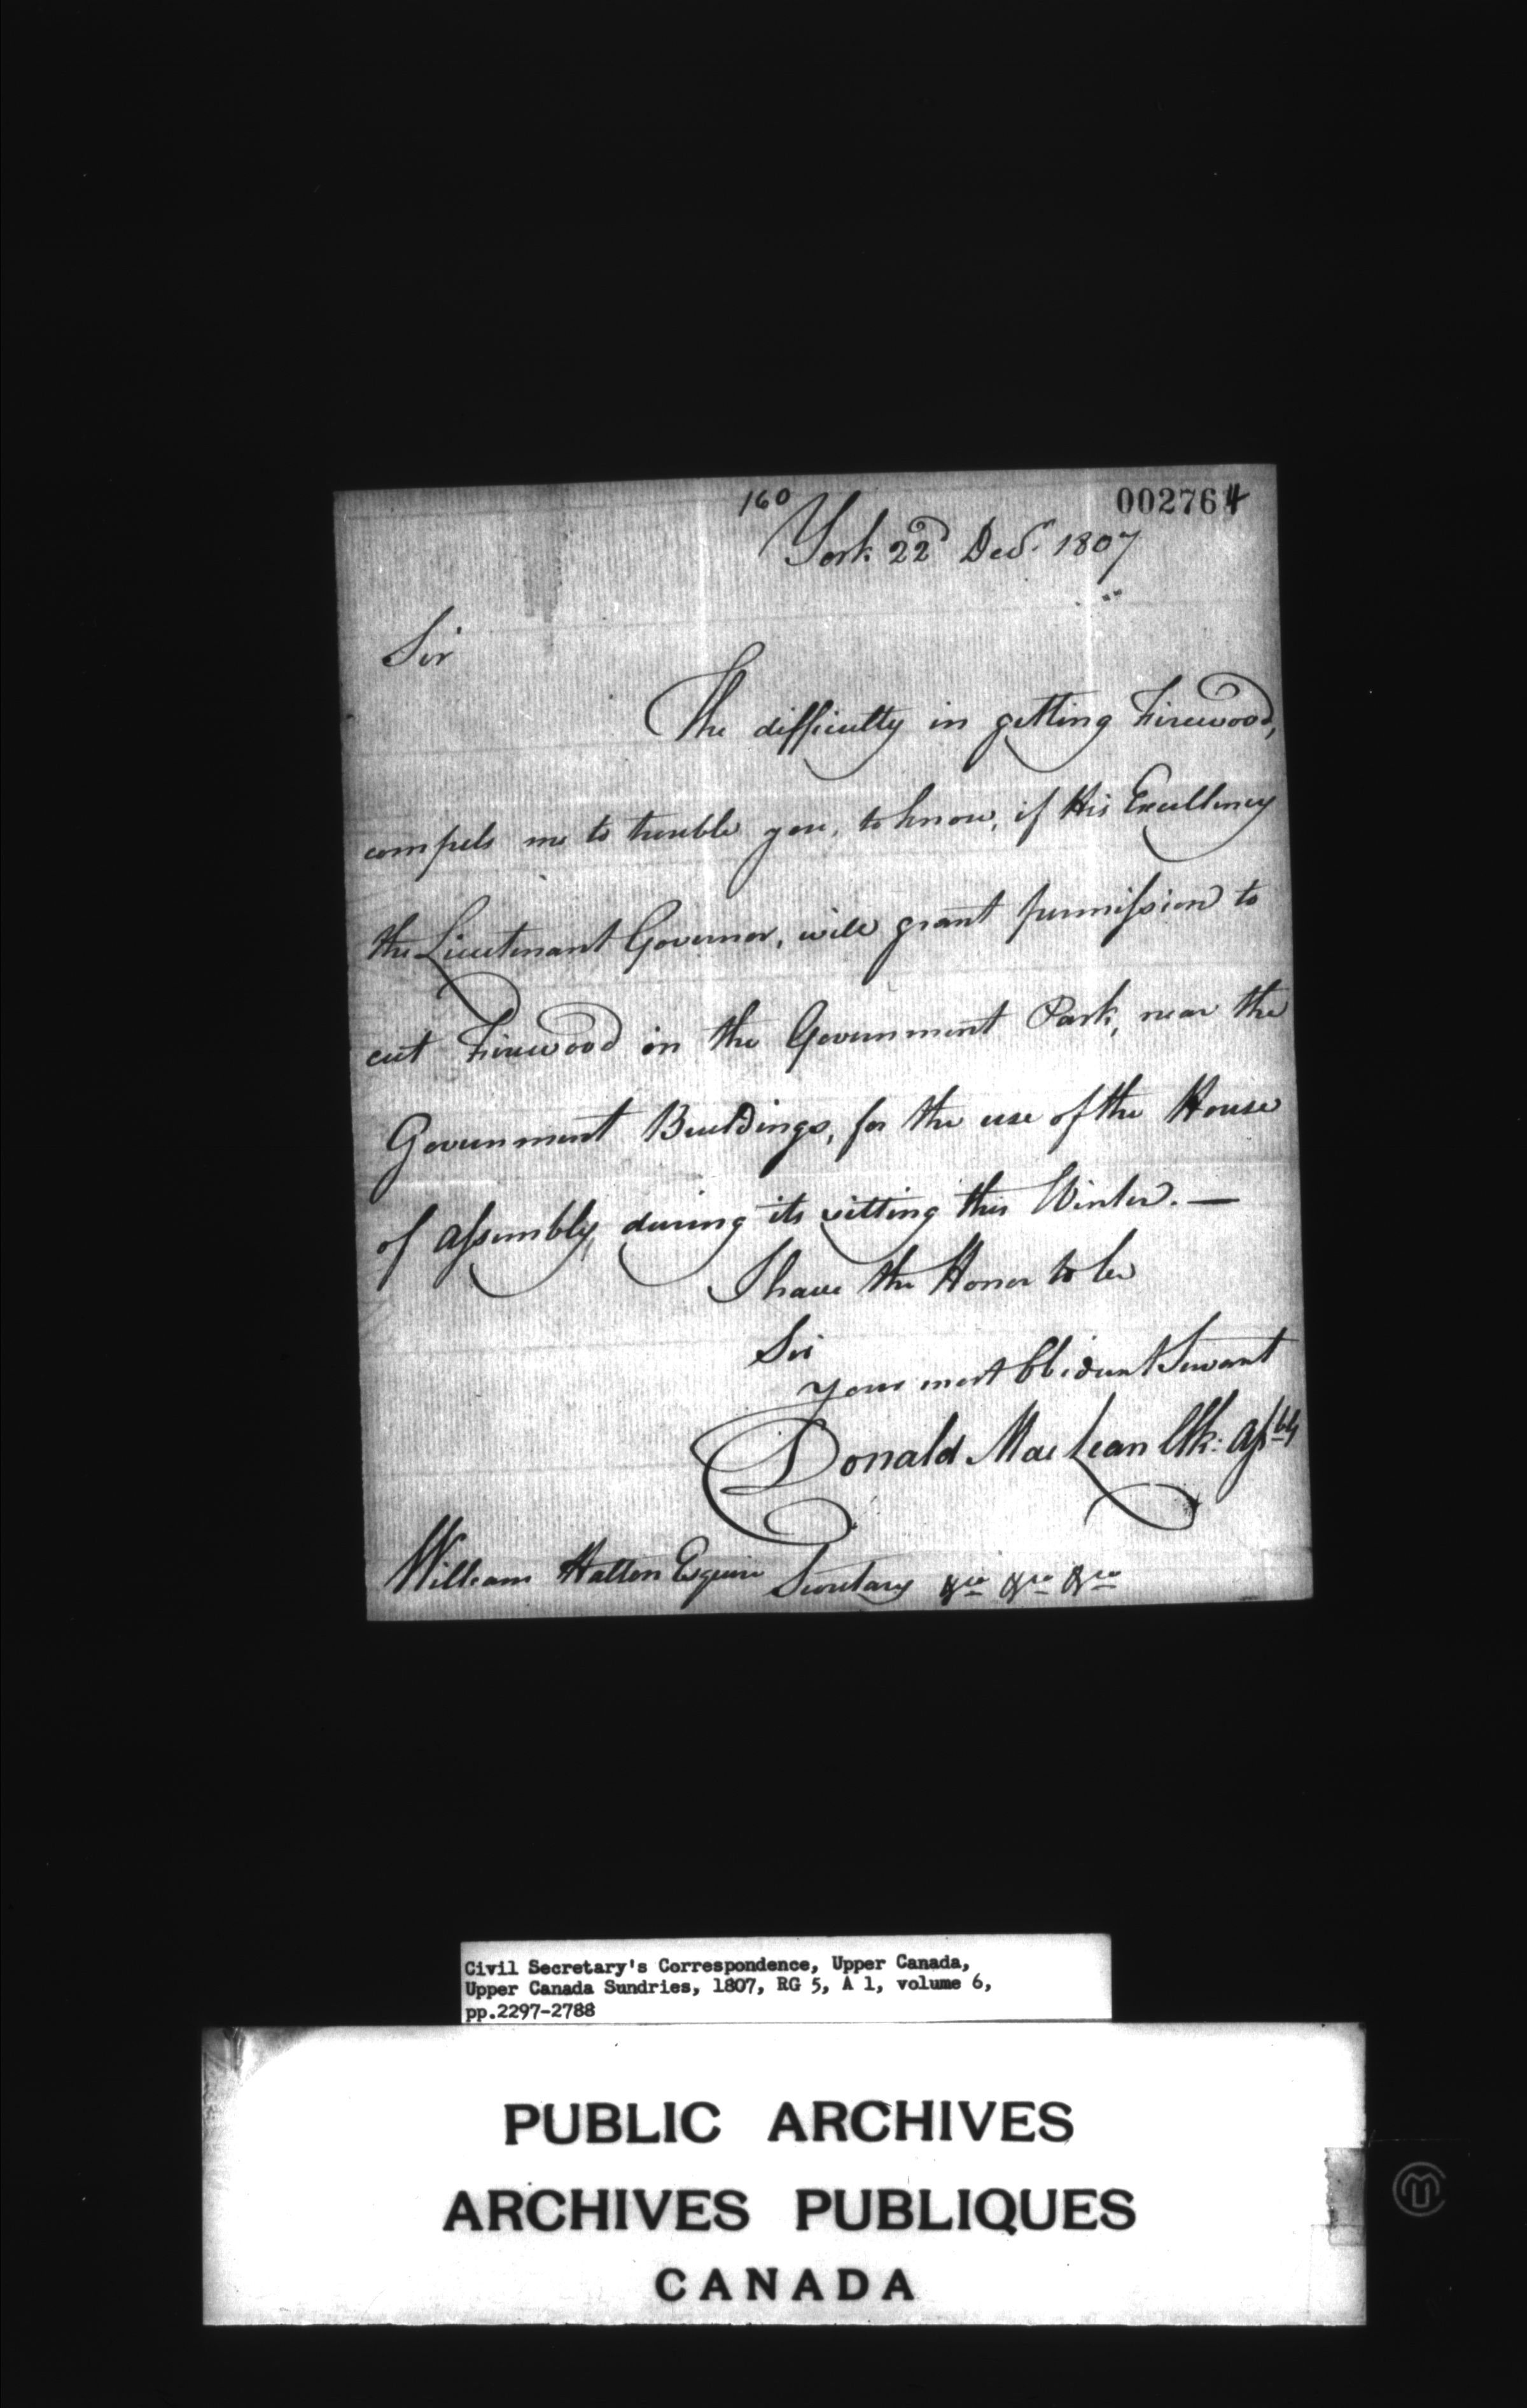 160
002764
York 22d Decr. 1807
Sir
The difficulty in getting Firewood,
compels me to trouble you, to know, if His Excellency
the Lieutenant Governor, will grant permission to
cut Firewood in the Government Park, near the
Government Buildings, for the use of the House
of Assembly, during its sitting this Winter. —
I have the Honor to be
Sir
your most Obedient Servant
Donald MacLean Clk: Assbly
William Halton Esquire Secretary &ca &ca &ca
Civil Secretary's Correspondence, Upper Canada,
Upper Canada Sundries, 1807, RG 5, A 1, volume 6,
pp.2297-2788
PUBLIC ARCHIVES
ARCHIVES PUBLIQUES
CANADA